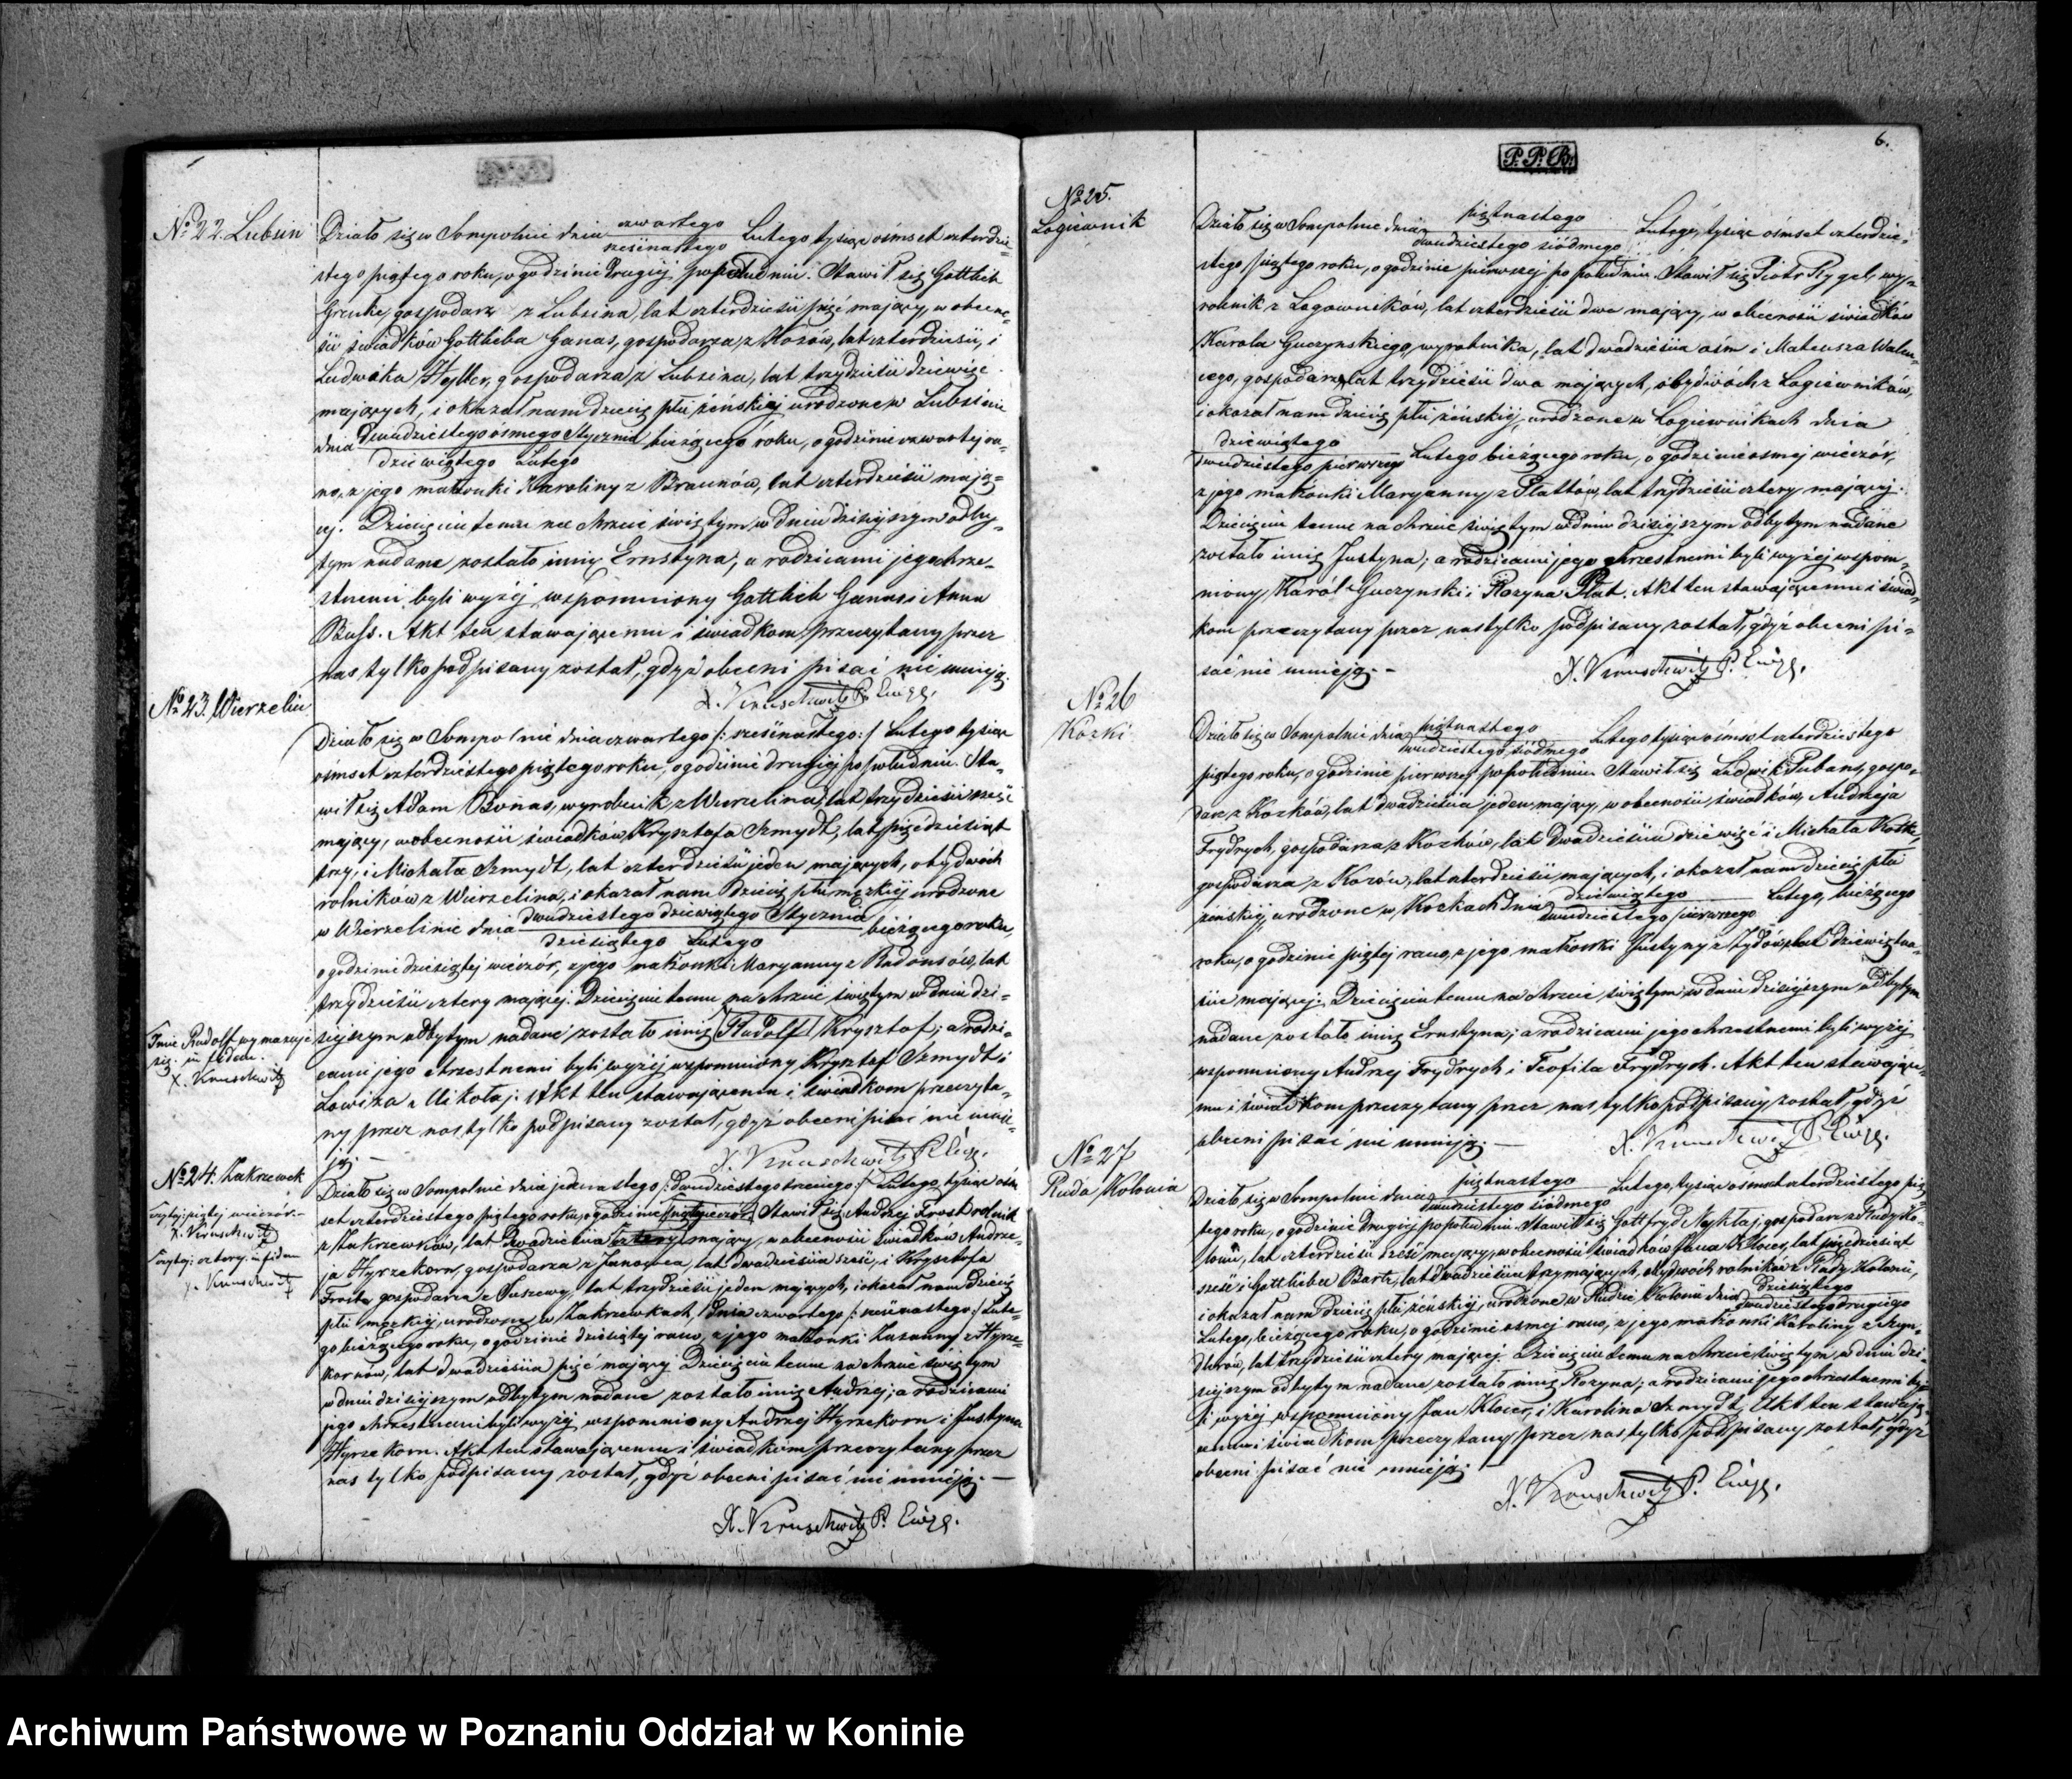 № 22. Lubsin
Działo się w Sompolnie dnia czwartego / szesnastego Lutego tysiąc ośmset czterdzie=
stego piątego roku, o godzinie drugiej popołudniu. Stawił się Gottlieb
gospodarz z Lubsina, lat czterdzieści pięć mający, w obecno=
ści świadków Gottlieba Ganas, gospodarza, z Kozów, lat czterdzieści, i
Ludwika Heller, gospodarza, z Lubsina, lat trzydzieści dziewięć
mających, i okazał nam dziecię płci żeńskiej urodzone w Lubsinie
dnia dwudziestego ósmego Stycznia / dziewiątego Lutego bieżącego roku, o godzinie czwartej ra=
no, z jego małżonki Karoliny z Braunów, lat czterdzieści mają=
cej. Dziecięciu temu na chrzcie świętym, w dniu dzisiejszym odby=
tym nadane zostało imię Ernstyna; a rodzicami jego chrze=
stnemi byli wyżej wspomniony Gottlieb Ganas i Anna
Buss. Akt ten stawającemu i świadkom przeczytany przez
nas tylko podpisany został, gdyż obecni pisać nie umieją.
X. Kruschwitz P. Ewıg.
№ 23. Wierzelin
Działo się w Sompolnie dnia czwartego /: szesnastego :/ Lutego tysiąc
ośmset czterdziestego piątego roku, o godzinie drugiej po południu. Sta=
wił się Adam Bonas, wyrobnik z Wierzelina, lat trzydzieści sześć
mający, w obecności świadków, Krysztofa Szmydt, lat pięćdziesiąt
trzy, i Michała Szmydt, lat czterdzieści jeden mających, obydwóch
rolników z Wierzelina, i okazał nam dziecię płci męzkiej urodzone
w Wierzelinie dnia dwudziestego dziewiątego Stycznia / dziesiątego Lutego bieżącego roku,
o godzinie dziesiątej wieczór, z jego małżonki Maryanny z Radonsów, lat
trzydzieści cztery mającej. Dziecięciu temu na chrzcie świętym w dniu dzi=
siejszym odbytym nadane zostało imię Rudolf Krysztof; a rodzi=
cami jego chrzestnemi byli wyżej wspomniony Krysztof Szmydt i
Lowiza Mikołaj. Akt ten stawającemu i świadkom przeczyta=
ny przez nas tylko podpisany został, gdyż obecni pisać nie umie=
ją. —
X. Kruschwitz P. Ewıg.
Imie Rudolf wymazuje
się. in fidem.
X. Kruschwitz
№ 24. Zakrzewek
Czytaj: piątej wieczór.—
X. Kruschwitz
Czytaj: cztery. in fidem
X. Kruschwitz
Działo się w Sompolnie dnia jedenastego /: dwudziestego trzeciego :/ Lutego, tysiąc ośm=
set czterdziestego piątego roku, o godzinie Stawił się Andrzej Frost rolnik
z Zakrzewków, lat dwadzieścia cztery mający, w obecności świadków Andrze=
ja Hyrzekorn, gospodarza z Janowca, lat dwadzieścia sześć, i Krysztofa
Frosta, gospodarza z Juszewy, lat trzydzieści jeden mających, i okazał nam dziecię
płci męzkiej, urodzone w Zakrzewkach, dnia czwartego /: szesnastego :/ Lute=
go bieżącego roku, o godzinie dziesiątej rano, z jego małżonki Zuzanny z Hyrze=
kornów, lat dwadzieścia pięć mającej. Dziecięciu temu na chrzcie świętym
w dniu dzisiejszym odbytym nadane zostało imię Andrzej; a rodzicami
jego chrzestnemi byli wyżej wspomniony Andrzej Hyrzekorn i Justyna
Hyrzekorn. Akt ten stawającemu i świadkom przeczytany przez
nas tylko podpisany został, gdyż obecni pisać nie umieją. —
X. Kruschwitz P. Ewıg.
6.
P. P. B.
№ 25.
Łagiewnik
Działo się w Sompolnie dnia piętnastego / dwudziestego siódmego Lutego, tysiąc ośmset czterdzie=
stego piątego roku, o godzinie pierwszej po południu. Stawił się Piotr Rygel, wy=
robnik z Łagiewników, lat czterdzieści dwa mający, w obecności świadków
Karola Guczynskiego, wyrobnika, lat dwadzieścia ośm i Mateusza
gospodarza, lat trzydzieści dwa mających, obydwóch z Łagiewników,
i okazał nam dziecię płci żeńskiej, urodzone w Łagiewnikach dnia
dziewiątego / dwudziestego pierwszego Lutego bieżącego roku, o godzinie ósmej wieczór,
z jego małżonki Maryanny z Plattów, lat trzydzieści cztery mającej.
Dziecięciu temu na chrzcie świętym w dniu dzisiejszym odbytym nadane
zostało imię Justyna; a rodzicami jego chrzestnemi byli wyżej wspom=
niony Karól Guczynski i Rozyna Plat. Akt ten stawającemu i świad=
kom przeczytany przez nas tylko podpisany został, gdyż obecni pi=
sać nie umieją. —
X. Kruschwitz P. Ewıg.
№ 26
Kozki
Działo się w Sompolnie dnia piętnastego / dwudziestego siódmego Lutego tysiąc ośmset czterdziestego
piątego roku, o godzinie pierwszej popołudniu. Stawił się Ludwik Pubans, gospo=
darz z Kozków, lat dwadzieścia jeden mający, w obecności świadków, Andrzeja
Frydrych, gospodarza z Kozków, lat dwadzieścia dziewięć i Michała
gospodarza z Kozów, lat czterdzieści mających, i okazał nam dziecię płci
żeńskiej, urodzone w Kozkach dnia dziewiątego / dwudziestego pierwszego Lutego, bieżącego
roku, o godzinie piątej rano, z jego małżonki Justyny z lat dziewiętna=
ście mającej. Dziecięciu temu na chrzcie świętym w dniu dzisiejszym odbytym
nadane zostało imię Ernstyna; a rodzicami jego chrzestnemi byli wyżej
wspomniony Andrzej Frydrych i Teofila Frydrych. Akt ten stawające=
mu i świadkom przeczytany przez nas tylko podpisany został, gdyż
obecni pisać nie umieją. —
X. Kruschwitz P. Ewıg.
№ 27
Ruda Kolonia
Działo się w Sompolnie dnia piętnastego / dwudziestego siódmego Lutego, tysiąc ośmset czterdziestego pią=
tego roku, o godzinie drugiej popołudniu. Stawił się Gottfryd gospodarz z Rudy Ko=
lonii, lat czterdzieści sześć mający, w obecności świadków Jana Kloier, lat pięćdziesiąt
sześć i Gottlieba Bartz, lat dwadzieścia trzy mających, obydwóch rolników z Rudy Kolonii,
i okazał nam dziecię płci żeńskiej, urodzone w Rudzie Kolonii dnia dziesiątego / dwudziestego drugiego
Lutego, bieżącego roku, o godzinie ósmej rano, z jego małżonki Karoliny z
lat trzydzieści cztery mającej. Dziecięciu temu na chrzcie świętym, w dniu dzi=
siejszym odbytym nadane zostało imię Rozyna; a rodzicami jego chrzestnemi by=
li wyżej wspomniony Jan Kloier, i Karolina Szmydt. Akt ten stawają=
cemu i świadkom przeczytany przez nas tylko podpisany został, gdyż
obecni pisać nie umieją. —
X. Kruschwitz P. Ewıg.
Archiwum Państwowe w Poznaniu Oddział w Koninie